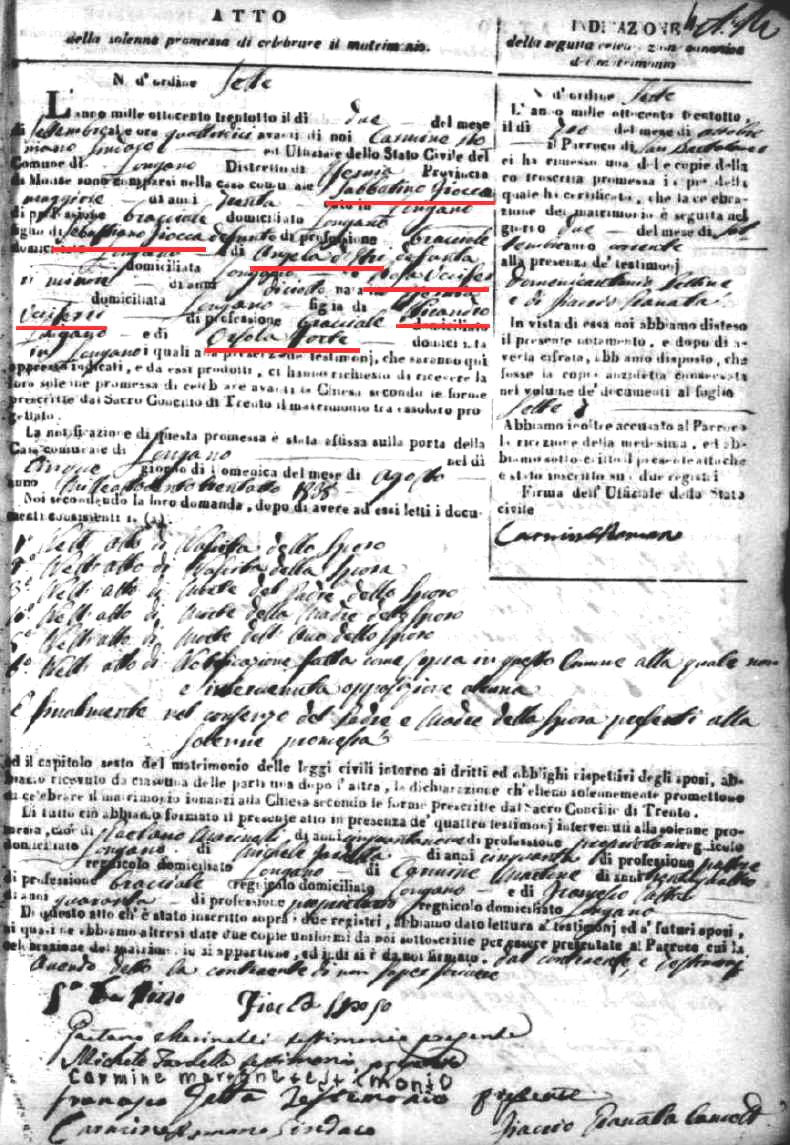 ATTO
della solenne promessa di celebrare il matrimonio.
N. d'ordine Sette
L'anno mille ottocento trentotto il dì due del mese
di Settembre ad ore quattordici avanti di noi Carmine Ro
mano Sindaco ed Uffiziale dello Stato Civile del
Comune di Longano Distretto di Isernia Provincia
di Molise sono comparsi nella casa comunale Sabbatino Ciocca
maggiore di anni trenta nato in Longano
di professione bracciale domiciliato Longano
figlio di Sebastiano Ciocca defunto di professione bracciale
domiciliato Longano e di Angela defunta
domiciliata Longano e Rosa Veciferi
minore di anni diciotto nata in Isernia
domiciliata Longano figlia di Nicandro
Veciferi di professione bracciale domiciliato
Longano e di Orsola Forte domiciliata
in Longano i quali alla presenza de' testimonj, che saranno qui
appresso indicati, e da essi prodotti, ci hanno richiesto di ricevere la
loro solenne promessa di celebrare avanti la Chiesa secondo le forme
prescritte dal Sacro Concilio di Trento il matrimonio tra essoloro pro
gettato.
La notificazione di questa promessa è stata affissa sulla porta della
Casa comunale di Longano nel dì
cinque giorno di Domenica del mese di Agosto
anno milleottocentotrentotto 1838
Noi secondando la loro domanda, dopo di avere ad essi letti i docu-
menti consistenti
1° Nell'atto di Nascita dello Sposo
2° Nell'atto di Nascita della Sposa
3° Nell'atto di Morte del Padre dello Sposo
4° Nell'atto di Morte della Madre dello Sposo
5° Nell'atto di Morte dell'Avo dello Sposo
6° Nell'atto di Notificazione fatta come sopra in questo Comune alla quale non
è intervenuta opposizione alcuna
E finalmente nel consenso del Padre e Madre della Sposa presenti alla
solenne promessa
ed il capitolo sesto del matrimonio delle leggi civili intorno ai dritti ed obblighi rispettivi degli sposi, ab-
biamo ricevuto da ciascuna delle parti una dopo l'altra, la dichiarazione ch'elleno solennemente promettono
di celebrare il matrimonio innanzi alla Chiesa secondo le forme prescritte dal Sacro Concilio di Trento.
Di tutto ciò abbiamo formato il presente atto in presenza de' quattro testimonj intervenuti alla solenne pro-
messa, cioè di Gaetano di anni cinquantanove di professione proprietario regnicolo
domiciliato Longano di Michele Fardella di anni cinquanta di professione pastore
regnicolo domiciliato Longano di Carmine Martone di anni
di professione bracciale regnicolo domiciliato Longano e di Francesco
di anni quaranta di professione proprietario regnicolo domiciliato Longano
Di questo atto ch'è stato inscritto sopra i due registri, abbiamo dato lettura a' testimonj ed a' futuri sposi,
ai quali ne abbiamo altresì date due copie uniformi da noi sottoscritte per essere presentate al Parroco cui la
celebrazione del matrimonio si appartiene, ed indi si è da noi firmato, dal contraente, e testimonj
avendo detto la contraente di non saper scrivere
Ciocca Sposo
Gaetano testimonio presente
Michele Fardella testimonio presente
Carmine martone testimonio
Francesco Testimonio presente
Carmine Romano Sindaco
INDICAZIONE
della seguita celebrazione canonica
del matrimonio
N. d'ordine Sette
L'anno mille ottocento trentotto,
il dì due del mese di ottobre
il Parroco di San Bartolomeo
ci ha rimesso una delle copie della
controscritta promessa a piè del
quale ha certificato, che la celebra-
zione del matrimonio è seguita nel
giorno due del mese di Set
tembre anno corrente
alla presenza de' testimonj
Domenicantonio
e di Granata
In vista di essa noi abbiamo disteso
il presente notamento, e dopo di a-
verla cifrata, abbiamo disposto, che
fosse la copia anzidetta conservata
nel volume de' documenti al foglio
Sette
Abbiamo inoltre accusato al Parroco
la ricezione della medesima, ed ab-
biamo sottoscritto il presente atto che
è stato inscritto su i due registri
Firma dell'Uffiziale dello Stato
civile
Carmine Romano